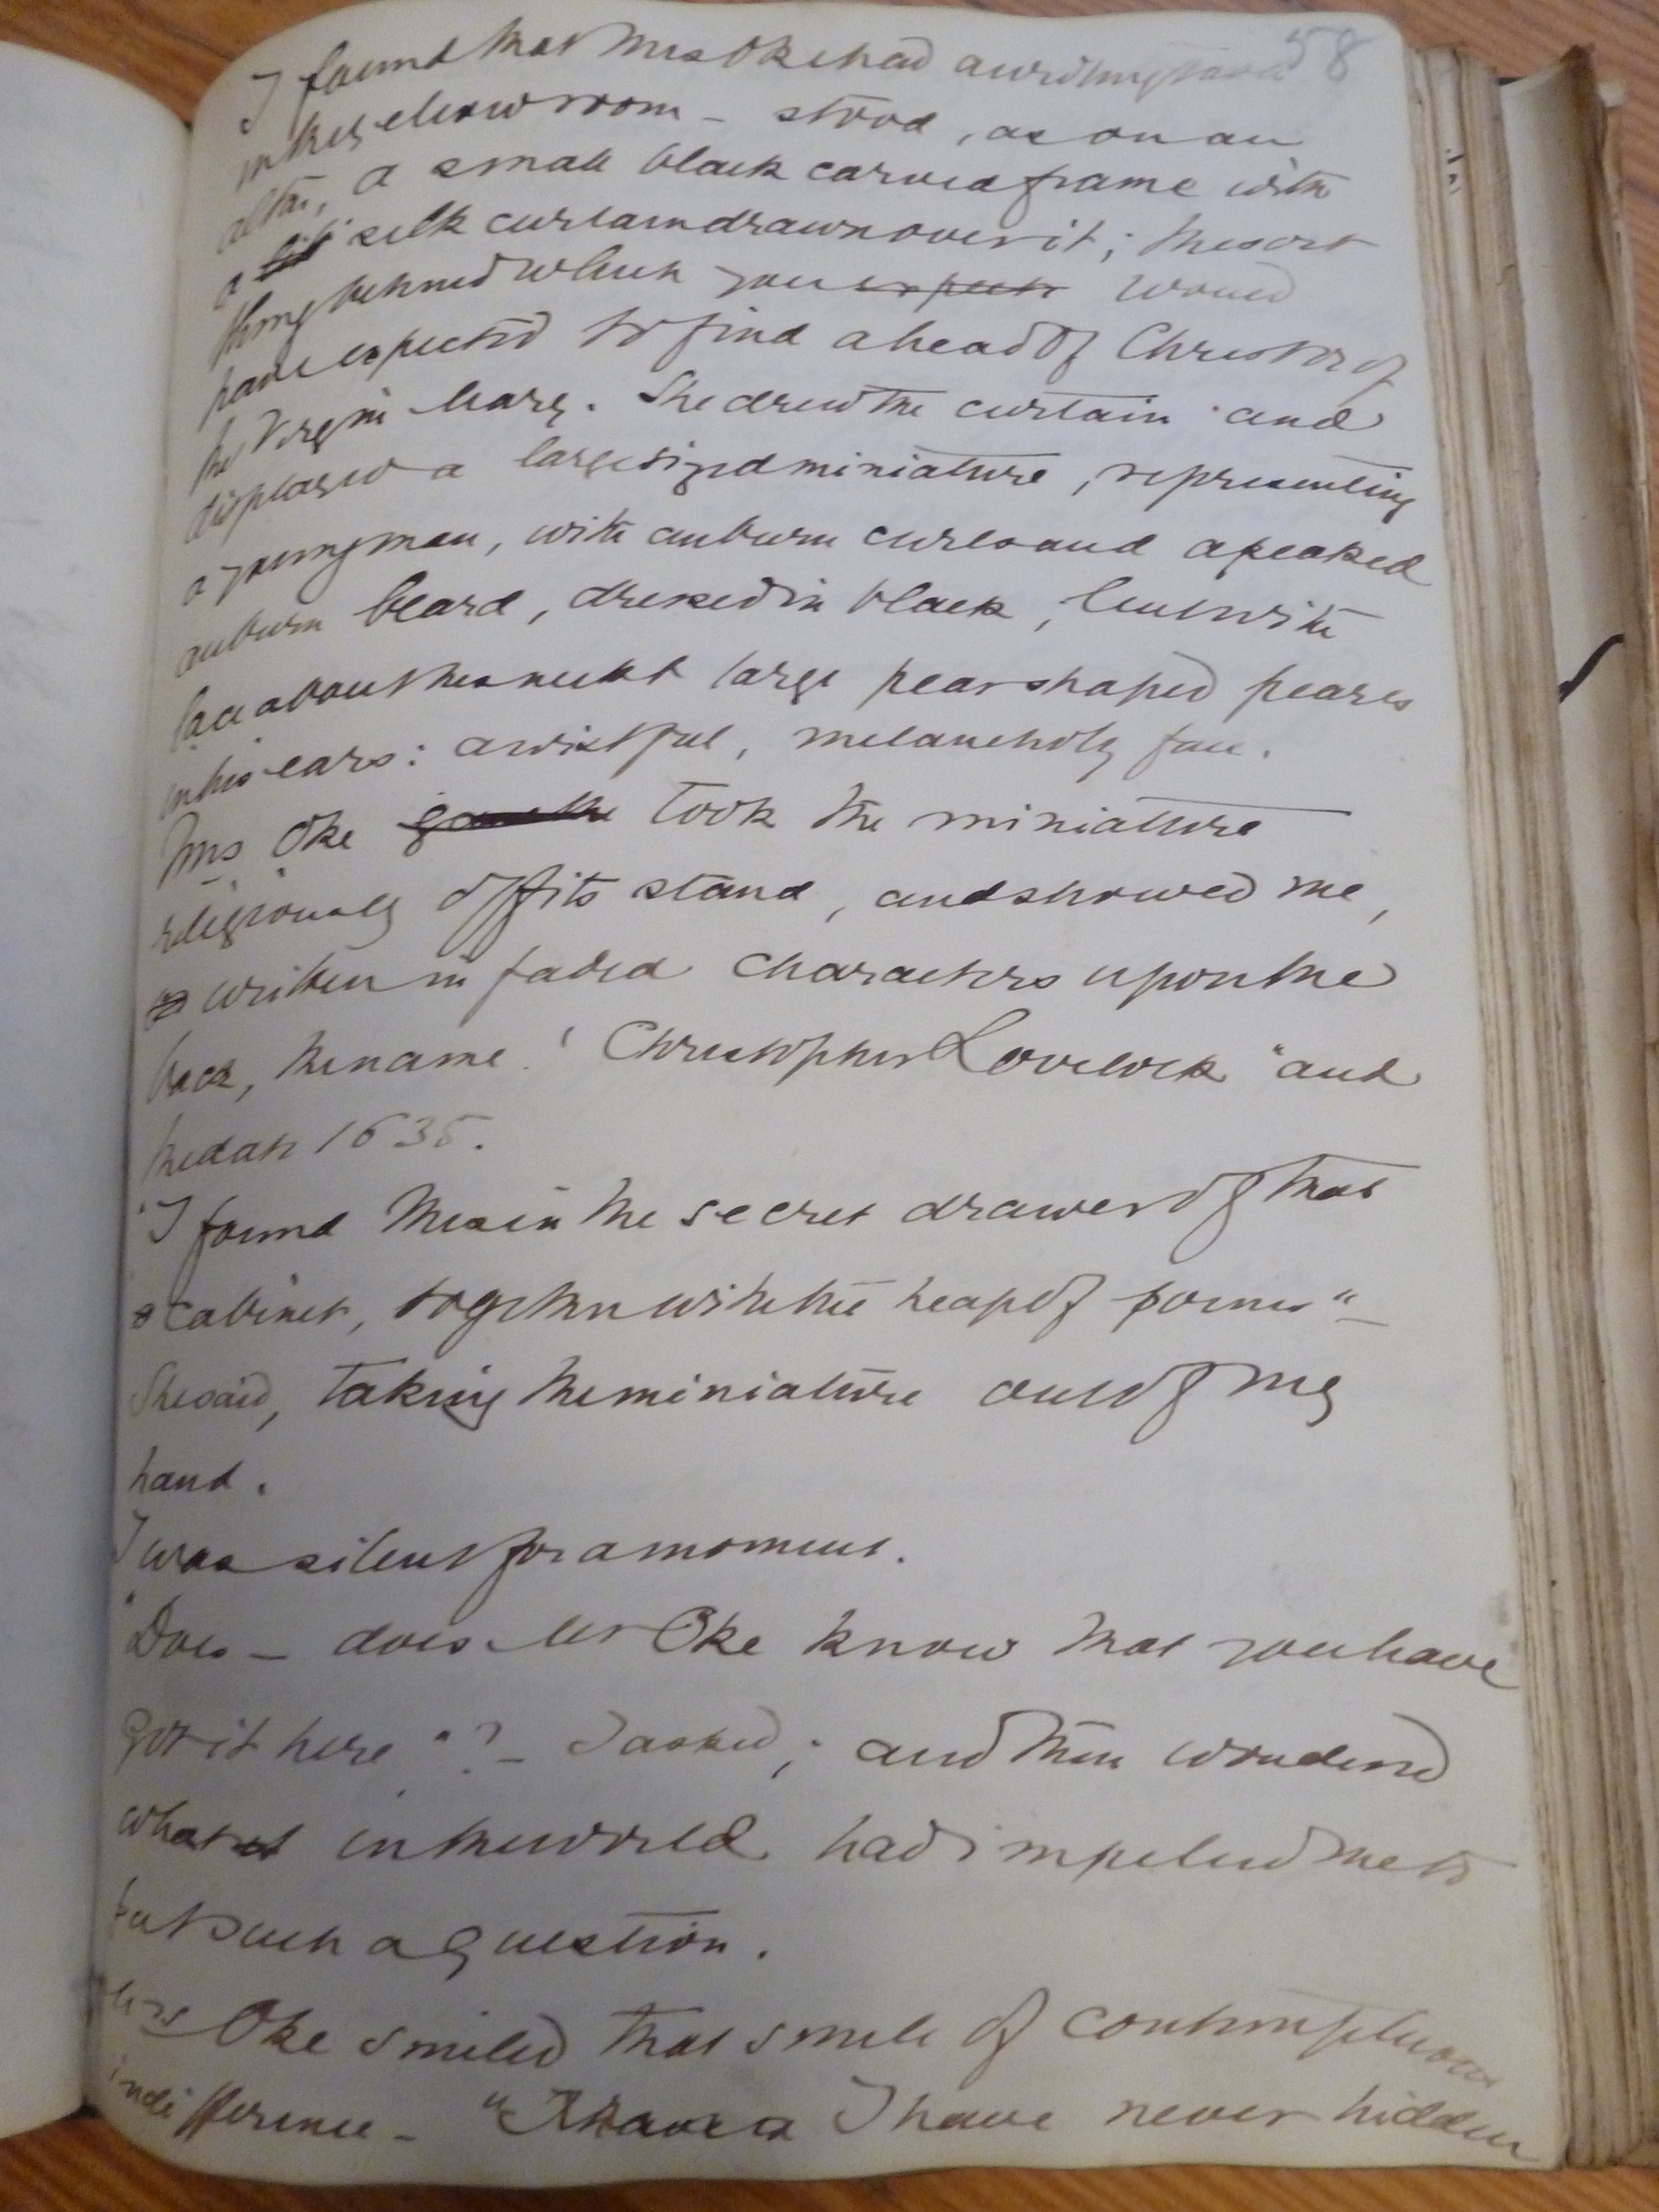 58
I found that Mrs Oke had a writing
in her yellow room – stood, as on an
altar, a small black carved frame with
a silk curtain drawn over it; the sort
thing behind which you expect would
have expected to find a head of Christ or of
the Virgin Mary. She drew the curtain and
displayed a large sized miniature, representing
a young man, with auburn curls and a peaked
auburn beard, dressed in black, but with
lace about his neck & large pear shaped pearls
in his ears: a wistful, melancholy face.
Mrs Oke took the miniature
religiously off its stand, and showed me,
written in faded characters upon the
back, the name "Christopher Lovelock" and
the date 1635.
"I found this in the secret drawer of that
cabinet, together with the heap of poems" –
She said, taking the miniature out of my
hand.
I was silent for a moment.
"Does – does Mr Oke know that you have
got it here"? – I asked; and then wondered
what in the world had impelled me to
put such a question.
Mrs Oke smiled that smile of contemptuous
indifference – " I have never hidden